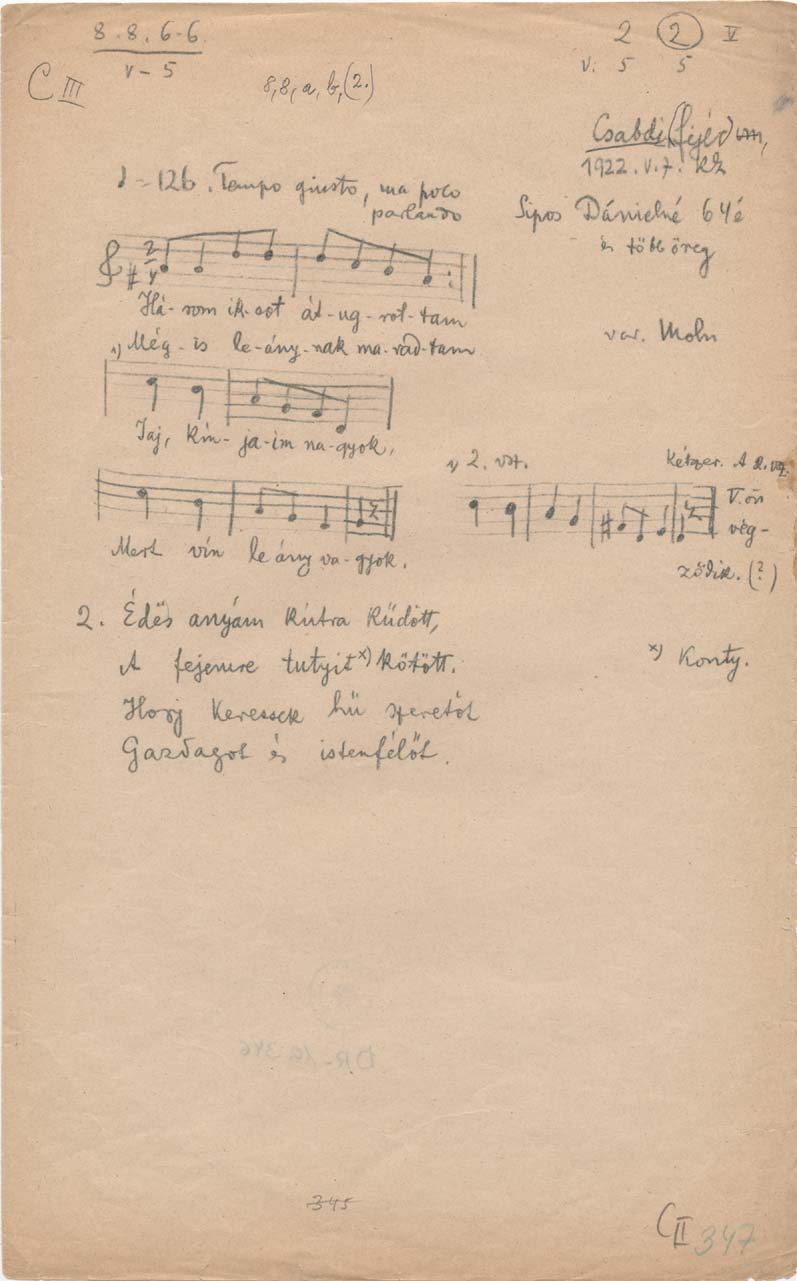 8.8.6.6.
v – 5
2 (2) V
v: 5 5
C III
8, 8, a, b, (2.)
Csabdi (Fejér) vm,
1922. V. 7. KZ
♩ = 126. Tempo giusto, ma poco
parlando
Sipos Dánielné 64é
és több öreg
Há- rom ik- sot át- ug- rot- tam
1) Még- is le- ány- nak ma- rad- tam
var. Moln
Jaj, kín- ja- im na- gyok,
1) 2. vsz.
Kétszer. A 2.
V. ön
vég-
ződik. (?)
Mert vín le ány va- gyok.
2. Édës anyám kútra küdött,
A fejemre tutyit x) kötött.
x) Konty.
Hogy keressek hű szeretőt
Gazdagot és istenfélőt.
DR-12346
345
C II 347